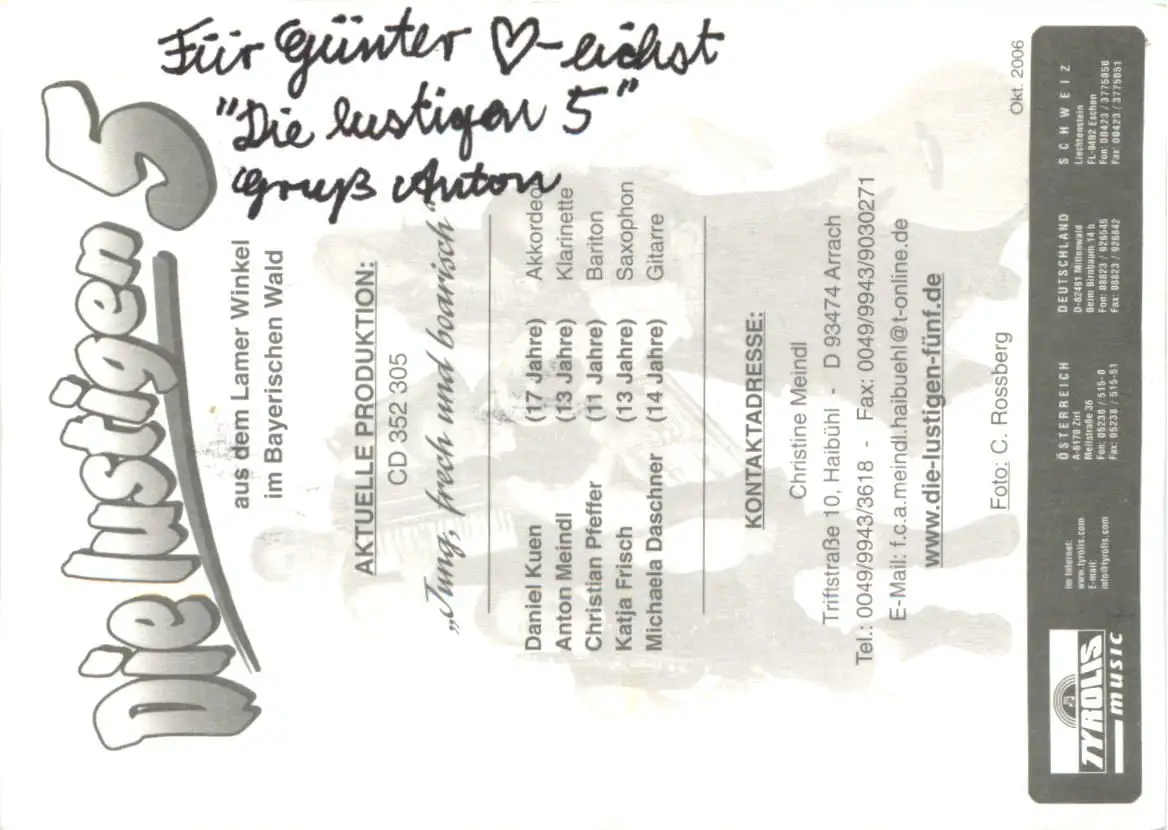 Für Günter ♡-lichst
"Die lustigen 5"
Gruß Anton
Die lustigen 5
aus dem Lamer Winkel
im Bayerischen Wald
AKTUELLE PRODUKTION:
CD 352 305
„Jung, frech und boarisch“
Daniel Kuen (17 Jahre) Akkordeon
Anton Meindl (13 Jahre) Klarinette
Christian Pfeffer (11 Jahre) Bariton
Katja Frisch (13 Jahre) Saxophon
Michaela Daschner (14 Jahre) Gitarre
KONTAKTADRESSE:
Christine Meindl
Triftstraße 10, Haibühl - D 93474 Arrach
Tel.: 0049/9943/3618 - Fax: 0049/9943/9030271
E-Mail: f.c.a.meindl.haibuehl@t-online.de
www.die-lustigen-fünf.de
Foto: C. Rossberg
Okt. 2006
TYROLIS
music
im Internet:
www.tyrolis.com
E-mail:
info@tyrolis.com
ÖSTERREICH
A-6170 Zirl
Meilstraße 36
Fon: 05238 / 515-0
Fax: 05238 / 515-51
DEUTSCHLAND
D-82481 Mittenwald
Beim Birnbaum 14 b
Fon: 08823 / 926545
Fax: 08823 / 926642
SCHWEIZ
Liechtenstein
FL-9492 Eschen
Fon: 00423 / 3775050
Fax: 00423 / 3775051